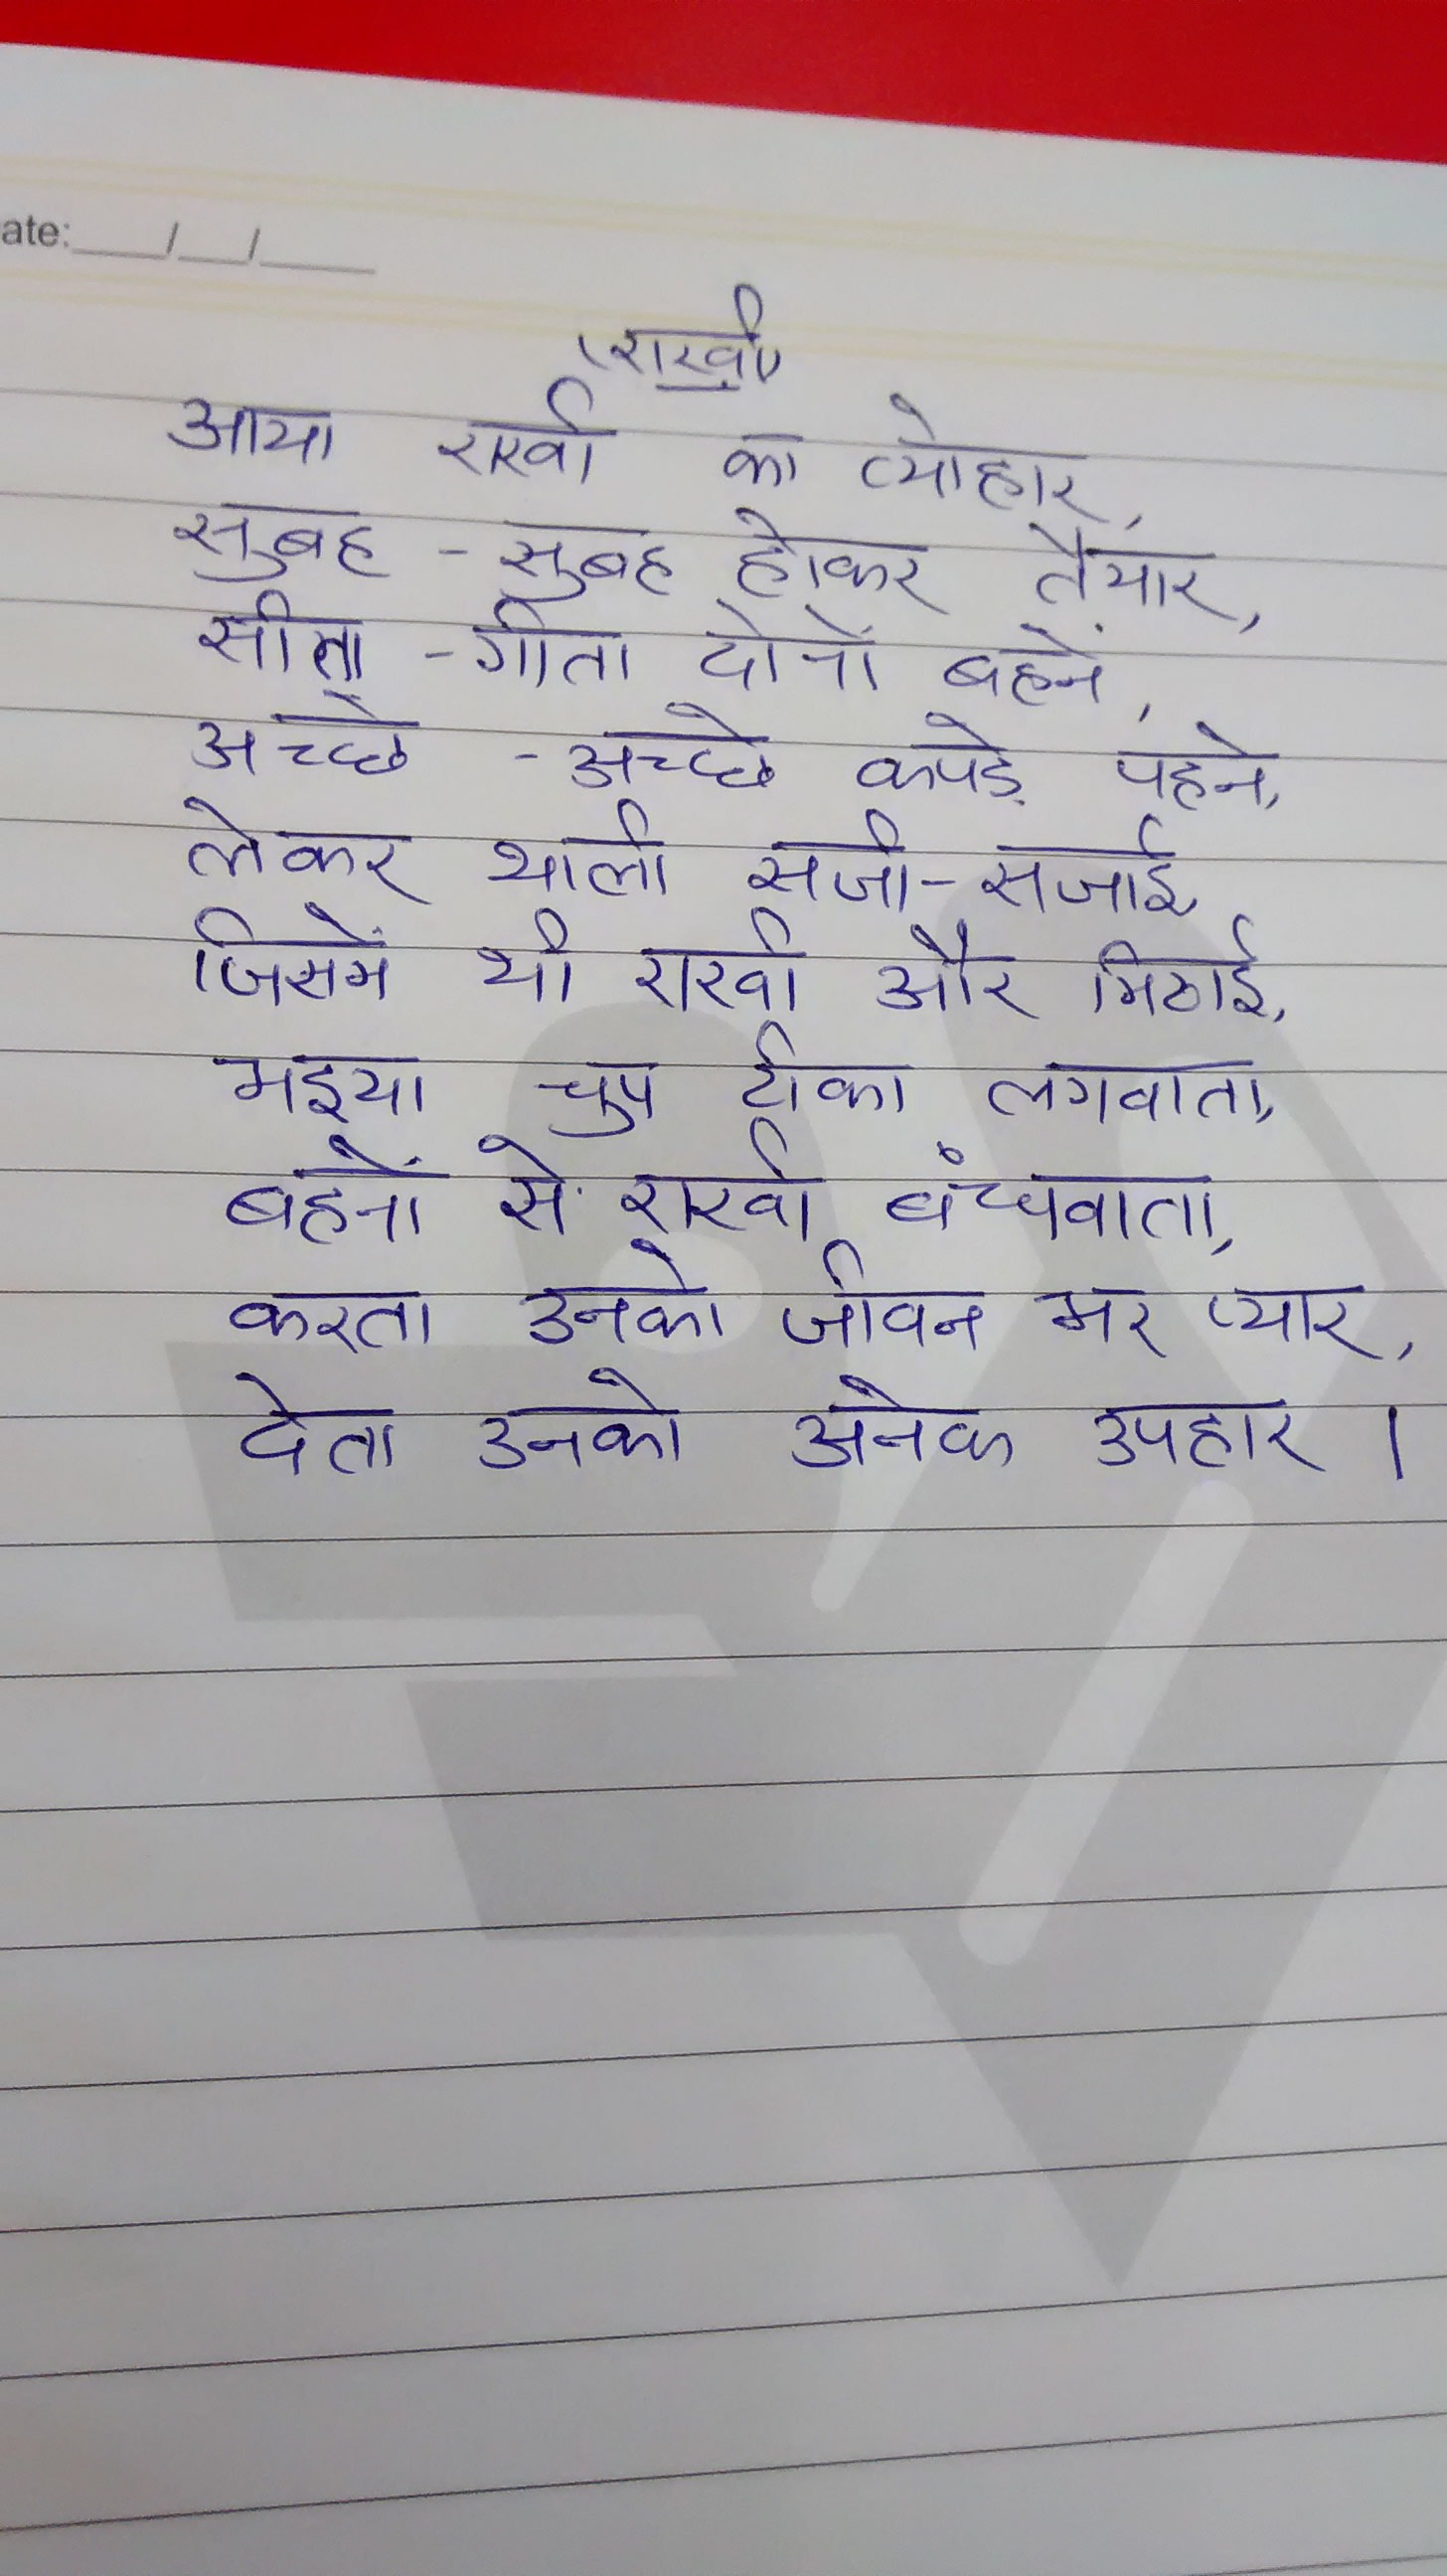 ate:___/___/____
(राखी)
आया राखी का त्योहार,
सुबह - सुबह होकर तैयार,
सीता - गीता दोनों बहनें,
अच्छे - अच्छे कपड़े पहने,
लेकर थाली सजी - सजाई,
जिसमें थी राखी और मिठाई,
भइया चुप टीका लगवाता,
बहनों से राखी बंधवाता,
करता उनको जीवन भर प्यार,
देता उनको अनेक उपहार ।